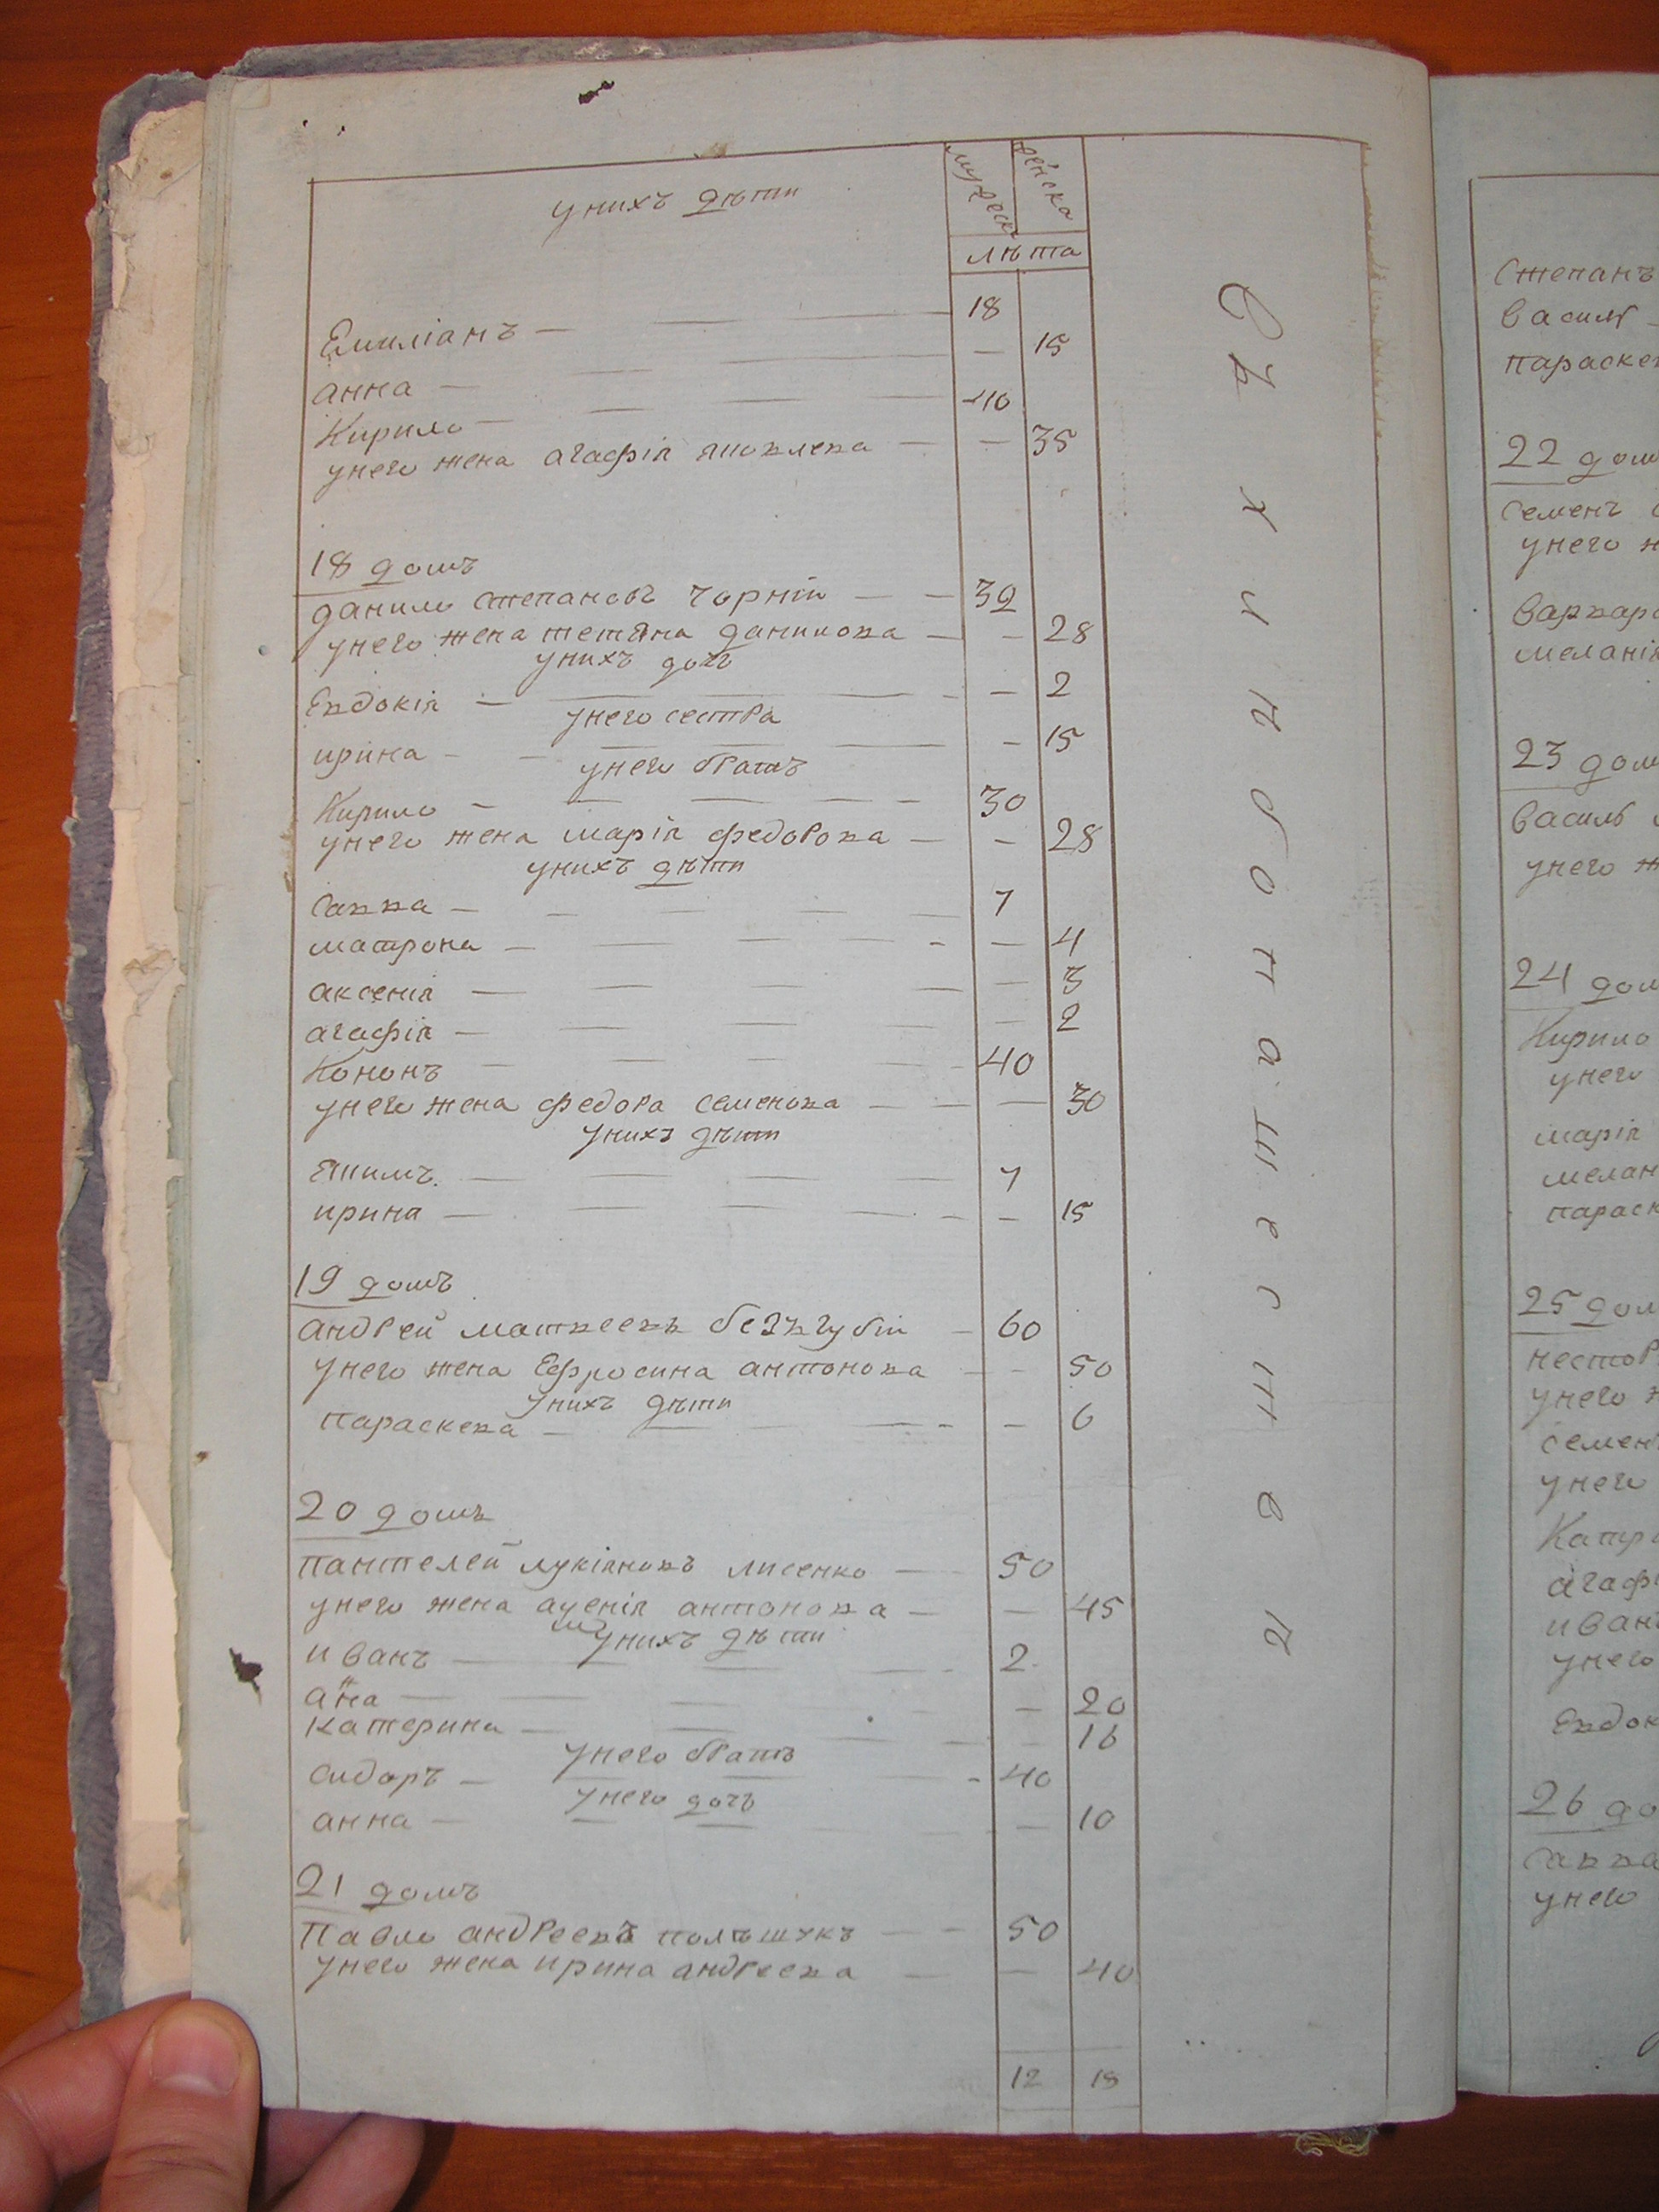 унихъ дѣти
мужеска
женска
лѣта
Емиліанъ — 18
анна — — 15
Кирило — 40
унего жена агафія яковлева — — 35
18 домъ
данило степановъ чорній — 32
унего жена тетяна данилова — — 28
унихъ дочъ
Евдокія — — 2
унего сестра
ирина — — 15
унего братъ
Кирило — 30
унего жена марія федорова — — 28
унихъ дѣти
Савва — 7
матрона — — 4
аксенія — — 3
агафія — — 2
Кононъ — 40
унего жена федора семенова — — 30
унихъ дѣти
якимъ — 7
ирина — — 15
19 домъ
андрей матвеевъ безъгубій — 60
унего жена Ефросина антонова — — 50
унихъ дѣти
параскева — — 6
20 домъ
пантелей лукіяновъ лисенко — 50
унего жена антонова — — 45
унихъ дѣти
иванъ — 2
анна — — 20
катерина — — 16
унего братъ
сидоръ — 40
унего дочъ
анна — — 10
21 домъ
Павло андреевъ полѣщукъ — 50
унего жена ирина андреева — — 40
12 18
Степанъ
василь
параскев
22 дом
Семенъ
унего
варвара
меланія
23 дом
василь
унего ж
24 дом
Кирило
унего
марія
мелан
параск
25 дом
нестор
унего
семен
унего
Катр
агаф
иванъ
унего
Евдок
26 до
Савва
унего